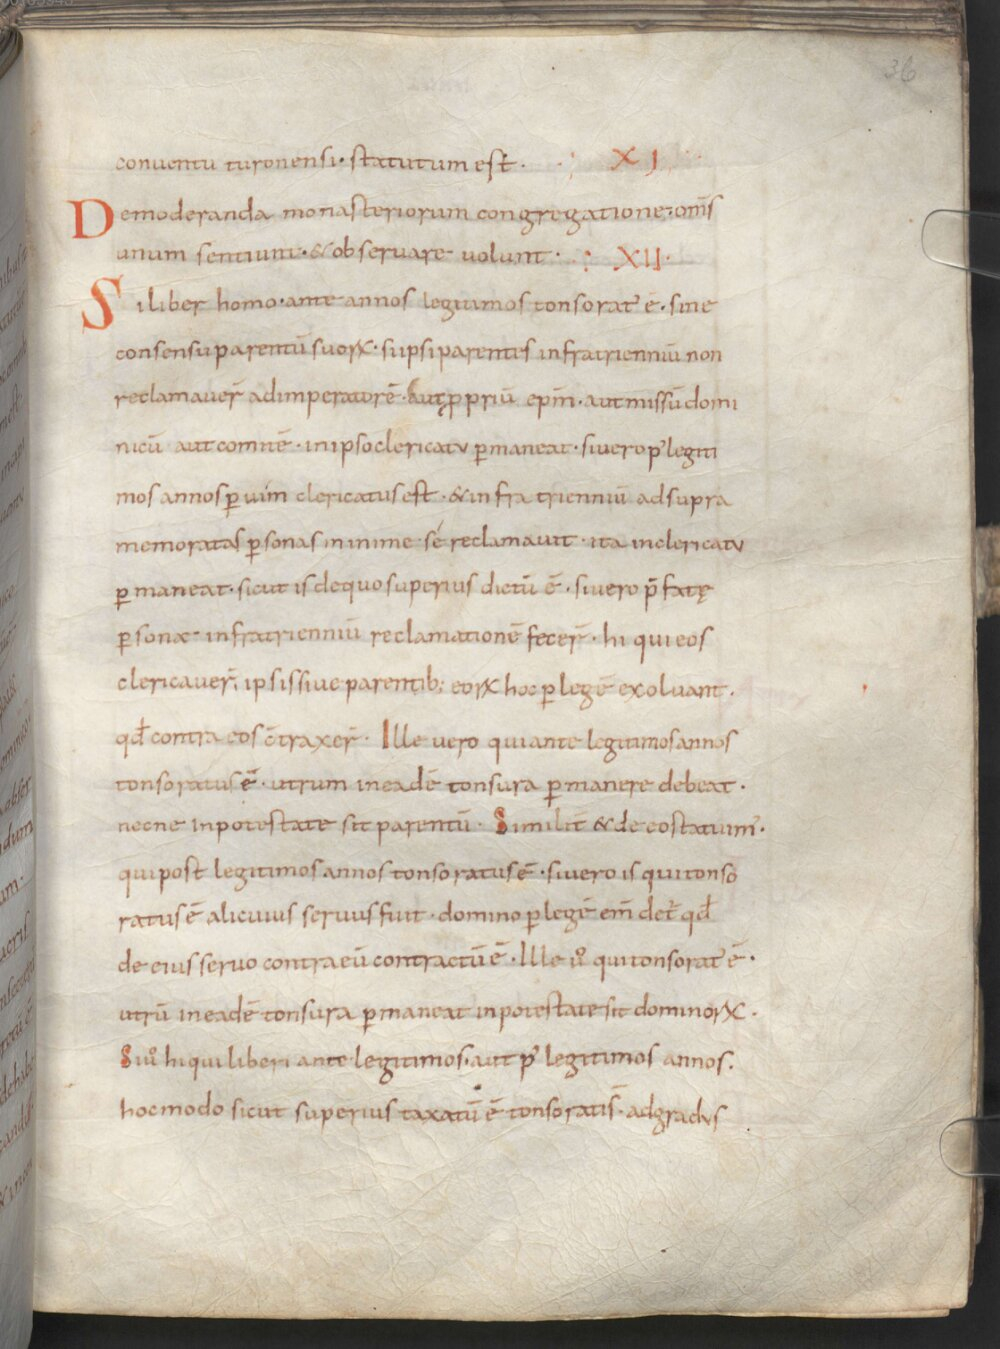 36
conuentu turonensi · statutum est · XI
Demoderanda monasteriorum congregatione · om̄s
unum sentiunt · & obseruare uolunt · XII ·
Siliber homo · ante annos legitimos tonsorat᾽ ē · sine
consensu parentū suoꝝ · siipsi parentes infra trienniū non
reclamauer̄ adimperatorē · aut ꝓpriū ep̄m · aut missū domi
nicū aut comitē · inipso clericatu ꝑmaneat · siuero p᾽ legiti
mos annos ꝑ uim clericatus est · & infra trienniū adsupra
memoratas ꝑsonas minime sé reclamauit · ita inclericatu
ꝑmaneat · sicut is dequo superius dictū ē · siuero p̄fatę
ꝑsonae infra trienniū reclamationē fecer̄ · hi qui eos
clericauer̄, ipsis siue parentib; eoꝝ hoc ꝑ legē exoluant ·
qđ contra eos c̄traxer̄ · Ille uero qui ante legitimos annos
tonsoratus ē · utrum ineadē tonsura ꝑmanere debeat ·
necne inpotestate sit parentū · Similit̄ & de eo statuim᾽ ·
qui post legitimos annos tonsoratus ē · siuero is qui tonso
ratus ē alicuius seruus fuit · domino ꝑ legē em̄ det̄ qđ
de eius seruo contra eū contractū ē · Ille uº qui tonsorat᾽ ē ·
utrū ineadē tonsura ꝑmaneat inpotestate sit dominoꝝ ·
Si uº hi qui liberi ante legitimos · aut p᾽ legitimos annos ·
hoc modo sicut superius taxatū ē tonsoratis · adgradus